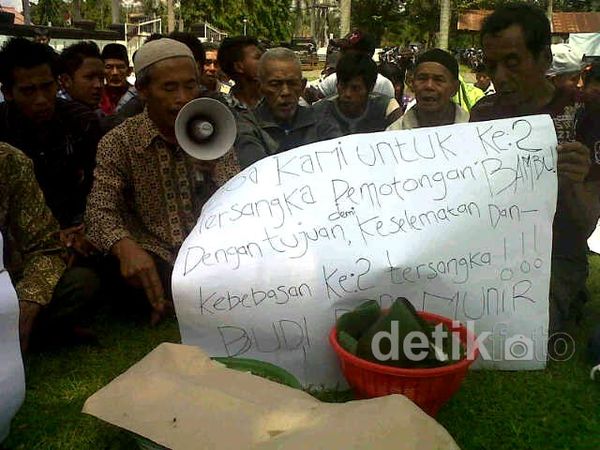 Doa Kami untuk Ke:2
tersangka Pemotongan BAMBU!
Dengan tujuan, demi Keselamatan Dan-
Kebebasan Ke:2 tersangka !!!
BUDI DAN MUNIR
detikfoto